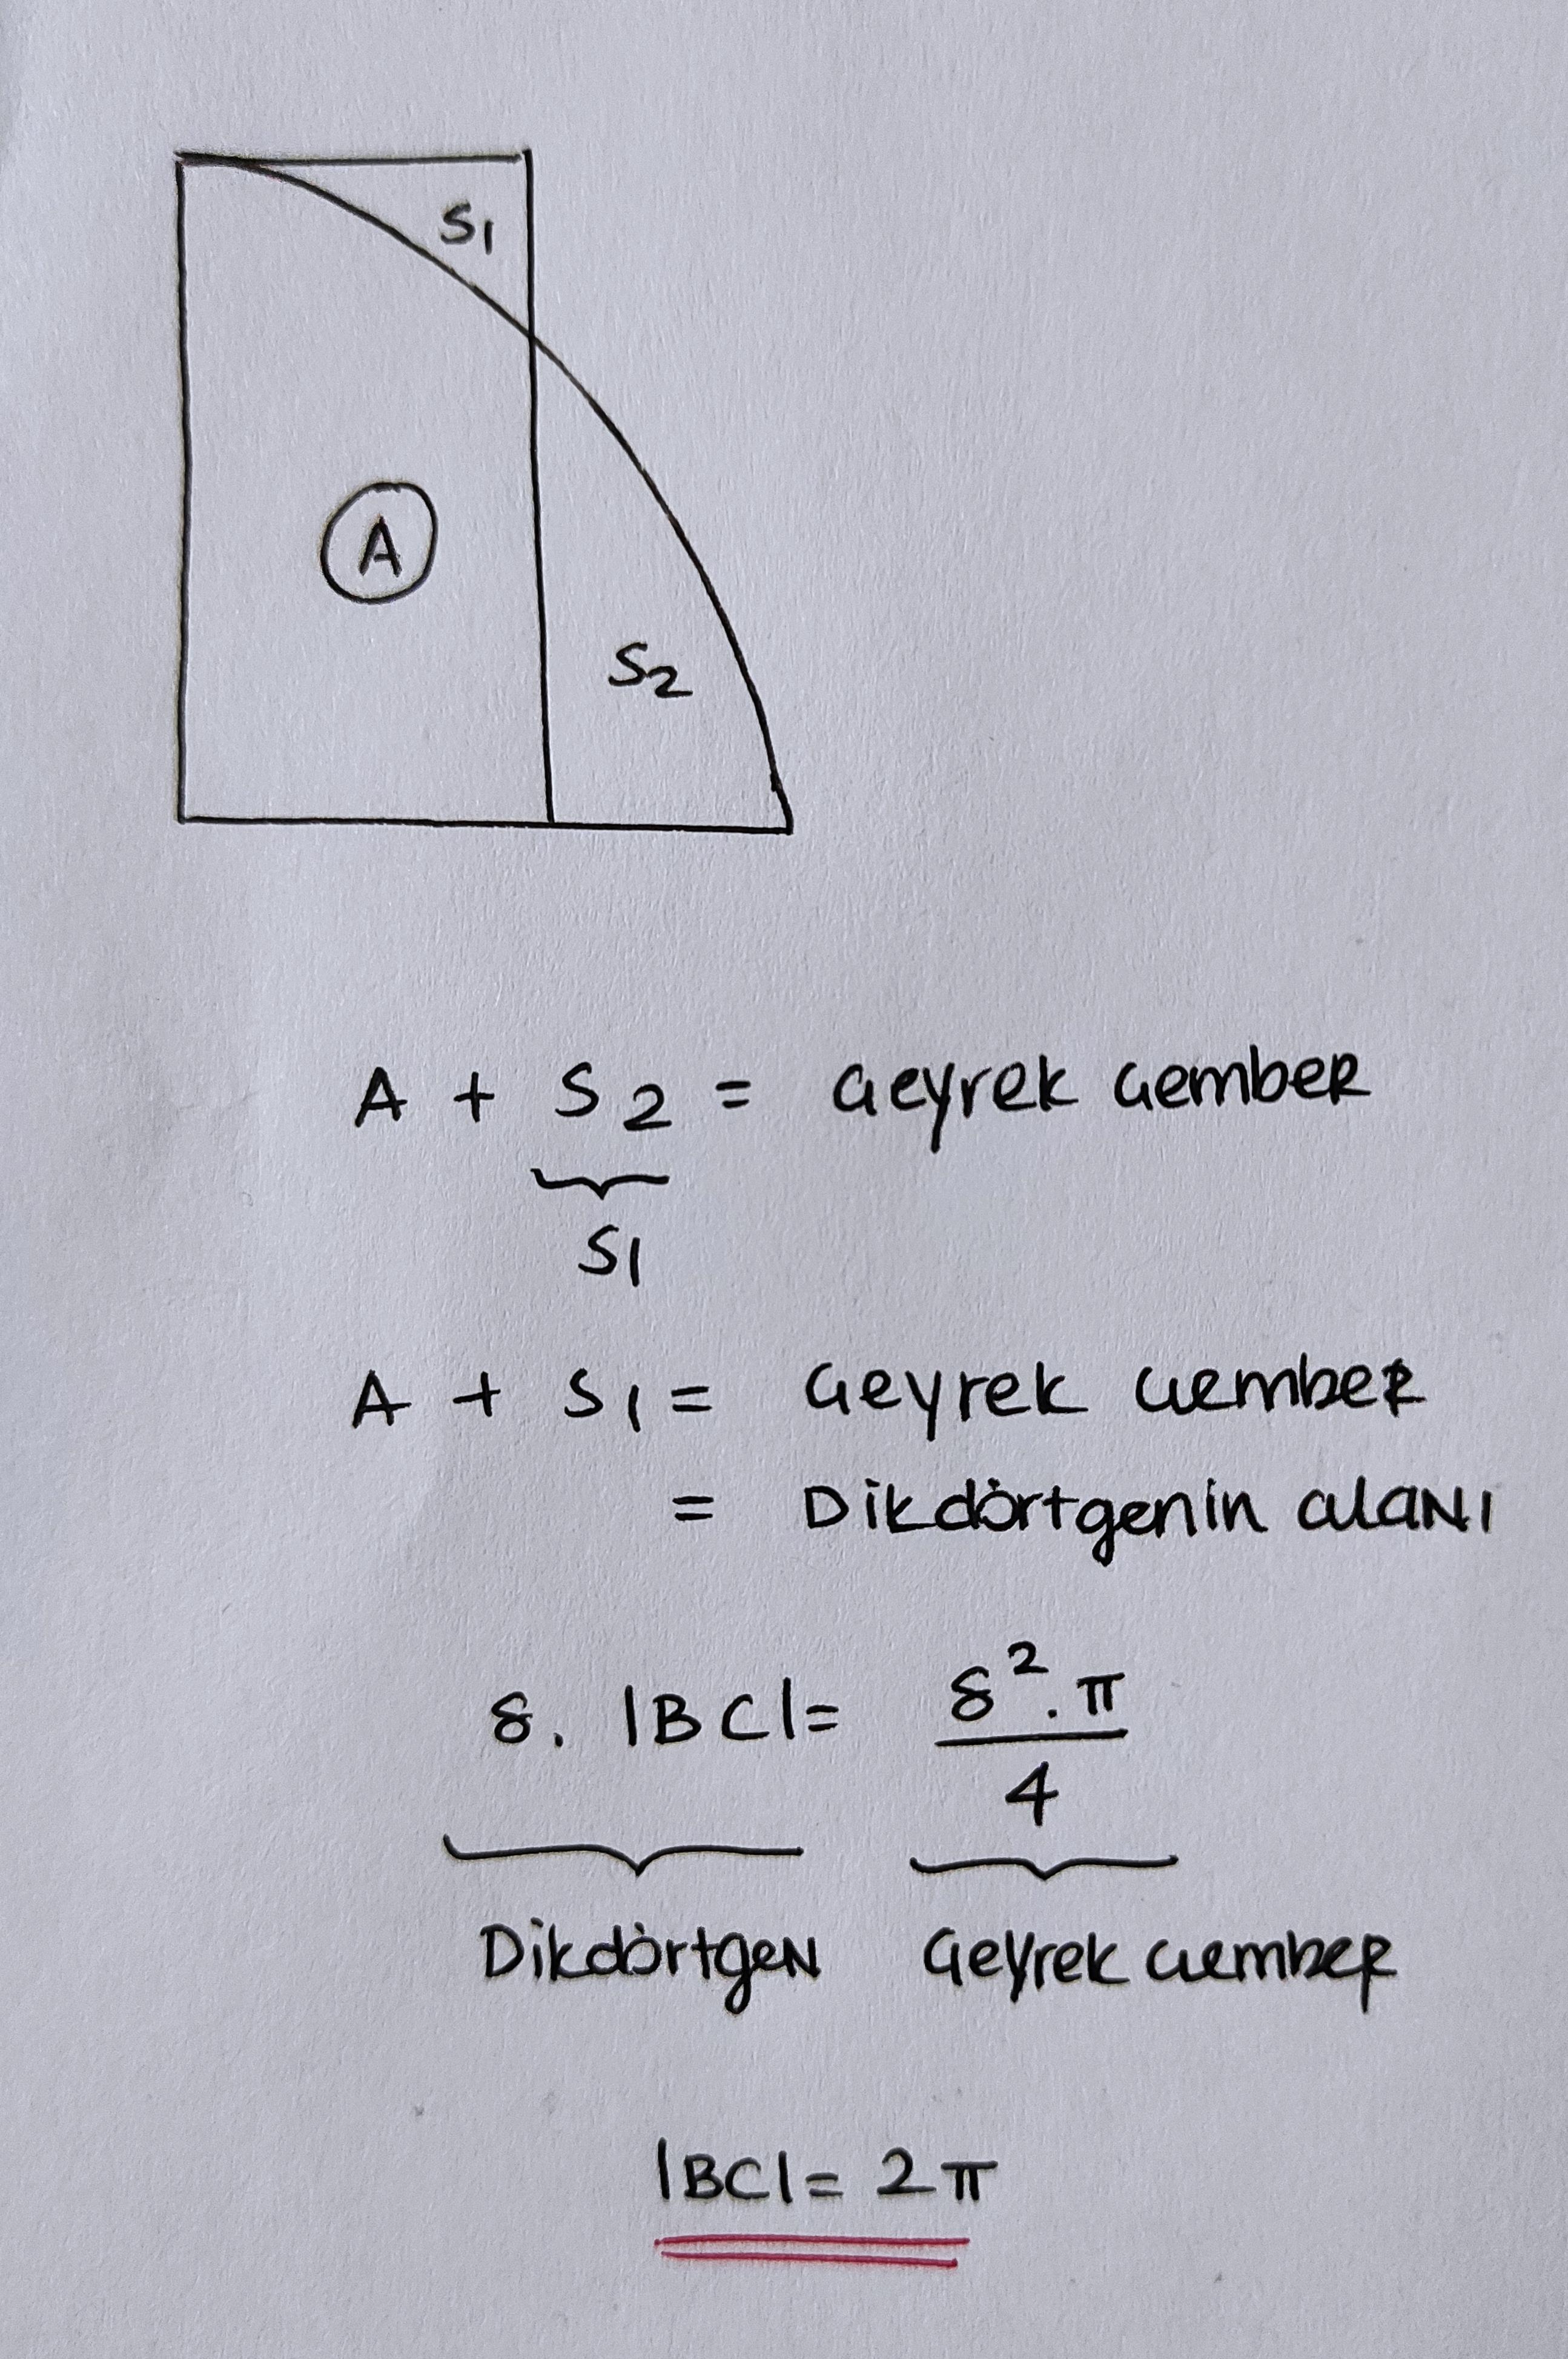 S1
A
S2
A + S2 = Çeyrek Çember
S1
A + S1 = Çeyrek Çember
= Dikdörtgenin alanı
8. |BC| = 8². π
4
Dikdörtgen Çeyrek Çember
|BC| = 2π